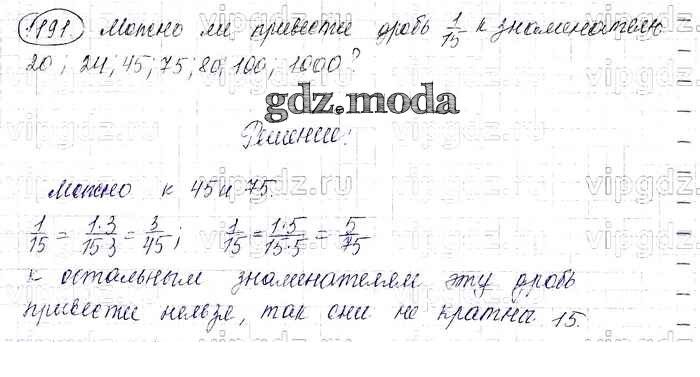 1191. Можно ли привести дробь 1/15 к знаменателю
20; 24; 45; 75; 80; 100; 1000?
gdz.moda
Решение:
Можно к 45 и 75.
1/15 = 1·3/15·3 = 3/45; 1/15 = 1·5/15·5 = 5/75
к остальным знаменателям эту дробь
привести нельзя, так они не кратны 15.
vipgdz.ru